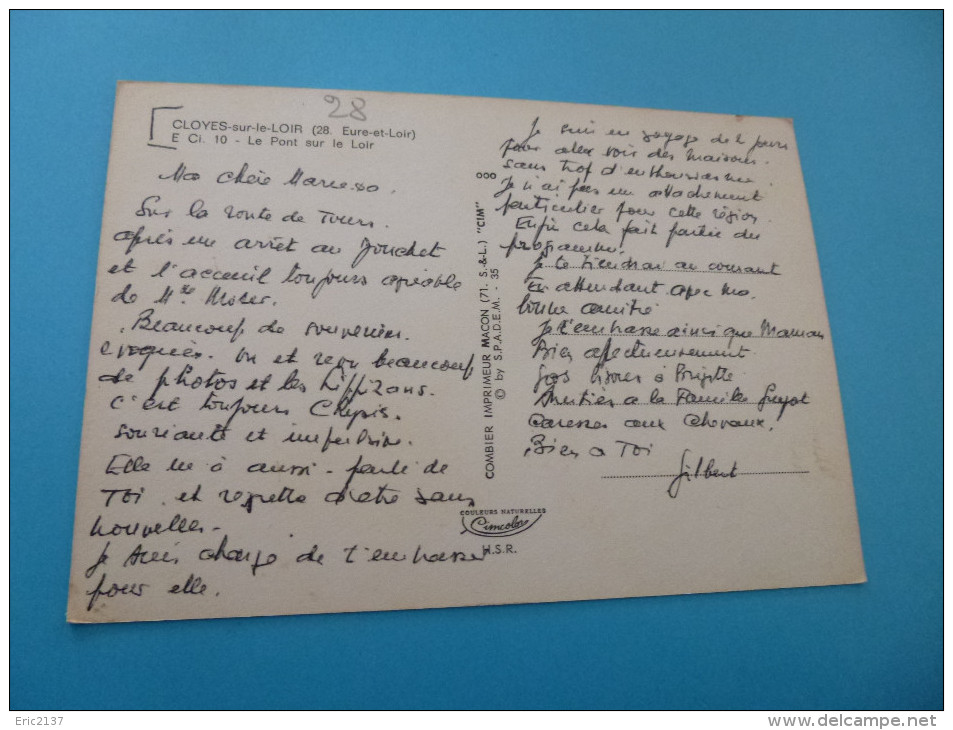 28
CLOYES-sur-le-LOIR (28. Eure-et-Loir)
E Ci. 10 - Le Pont sur le Loir
Ma chère
Sur la route de Tours.
après un arret au Jonchet
et l'acceuil toujours agréable
de Mme Moser.
Beaucoup de souvenirs
evoqués. Vu et revu beaucoup
de photos et les Lippizans.
C'est toujours
souriante et impulsive.
Elle m'a aussi parlé de
Toi et regrette d'etre sans
nouvelles -
Je suis chargé de t'embrasser
pour elle.
COMBIER IMPRIMEUR MACON (71. S.-&-L.) "CIM"
© by S.P.A.D.E.M. - 35
COULEURS NATURELLES
Cimcolor
H.S.R.
Je suis en voyage de 2 jours
pour aller voir des maisons.
sans trop d'enthousiasme.
Je n'ai pas un attachement
particulier pour cette région.
Enfin cela fait partie du
programme.
Je te tiendrai au courant
En attendant avec ma
bonne amitié
Je t'embrasse ainsi que Maman
Bien affectueusement
Gros bisous à Brigitte
Amitiés a la Famille Guyot
Caresses aux Chevaux.
Bien a Toi
Gilbert
Eric2137
www.delcampe.net